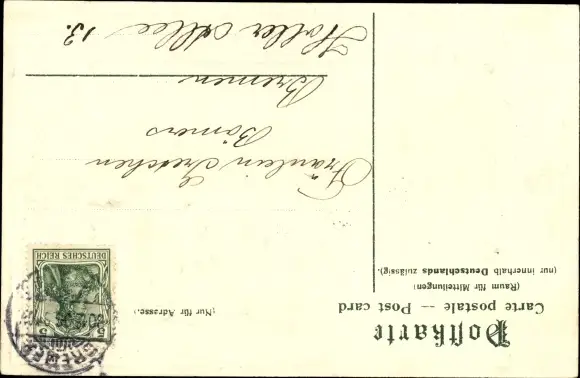 Postkarte
Carte postale — Post card
(Raum für Mitteilungen)
(nur innerhalb Deutschlands zulässig).
(Nur für Adresse.)
5 5
DEUTSCHES REICH
BREMEN
Fräulein Greschen
Bömers
Bremen
Holler Allee 13.